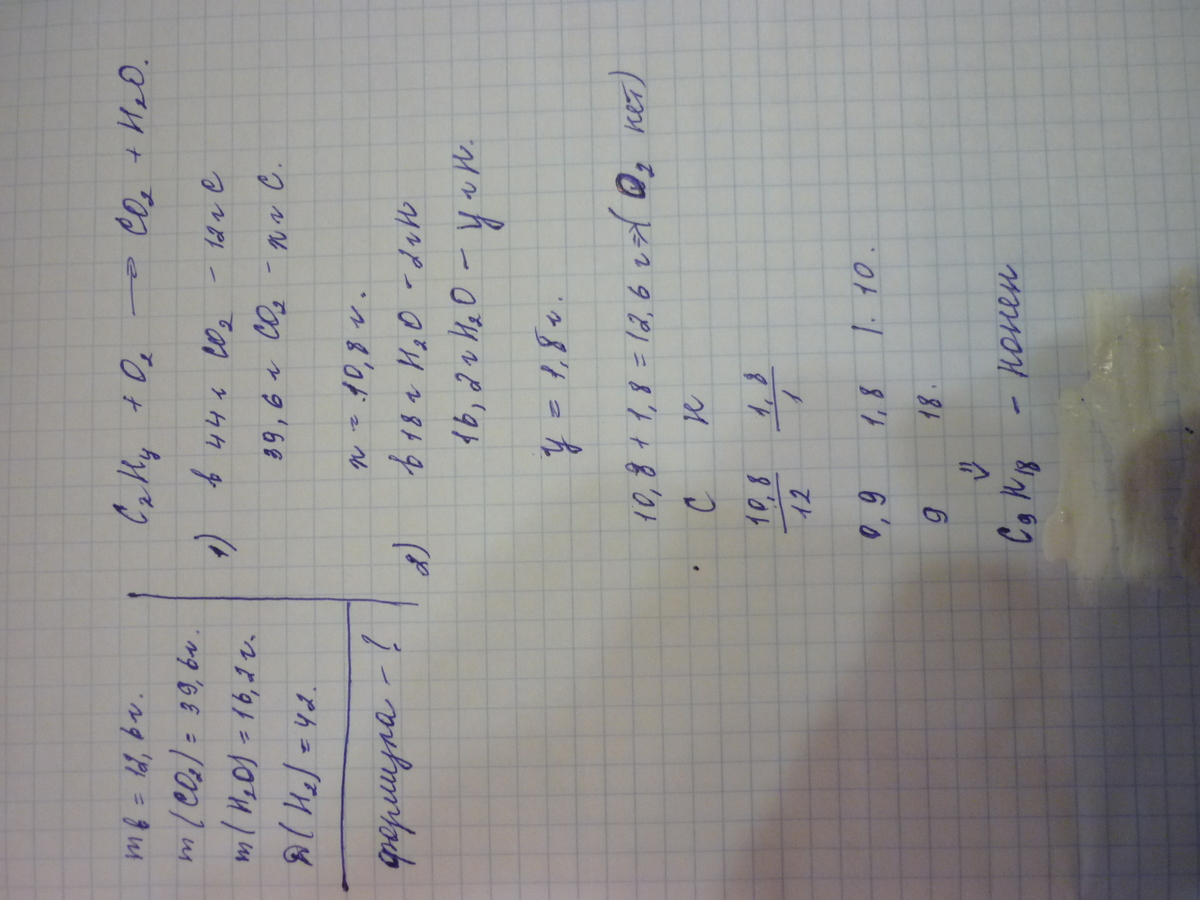 mв = 12,6 г.
m(CO₂) = 39,6 г.
m(H₂O) = 16,2 г.
D(H₂) = 42.
формула - ?
CₓHᵧ + O₂ → CO₂ + H₂O.
1) в 44 г CO₂ - 12 г C
39,6 г CO₂ - x г C.
x = 10,8 г.
2) в 18 г H₂O - 2 г H
16,2 г H₂O - y г H.
y = 1,8 г.
10,8 + 1,8 = 12,6 г ⇒ (O₂ нет)
C H
10,8/12 1,8/1
0,9 1,8 | · 10.
9 18.
⇓
C₉H₁₈ - нонен